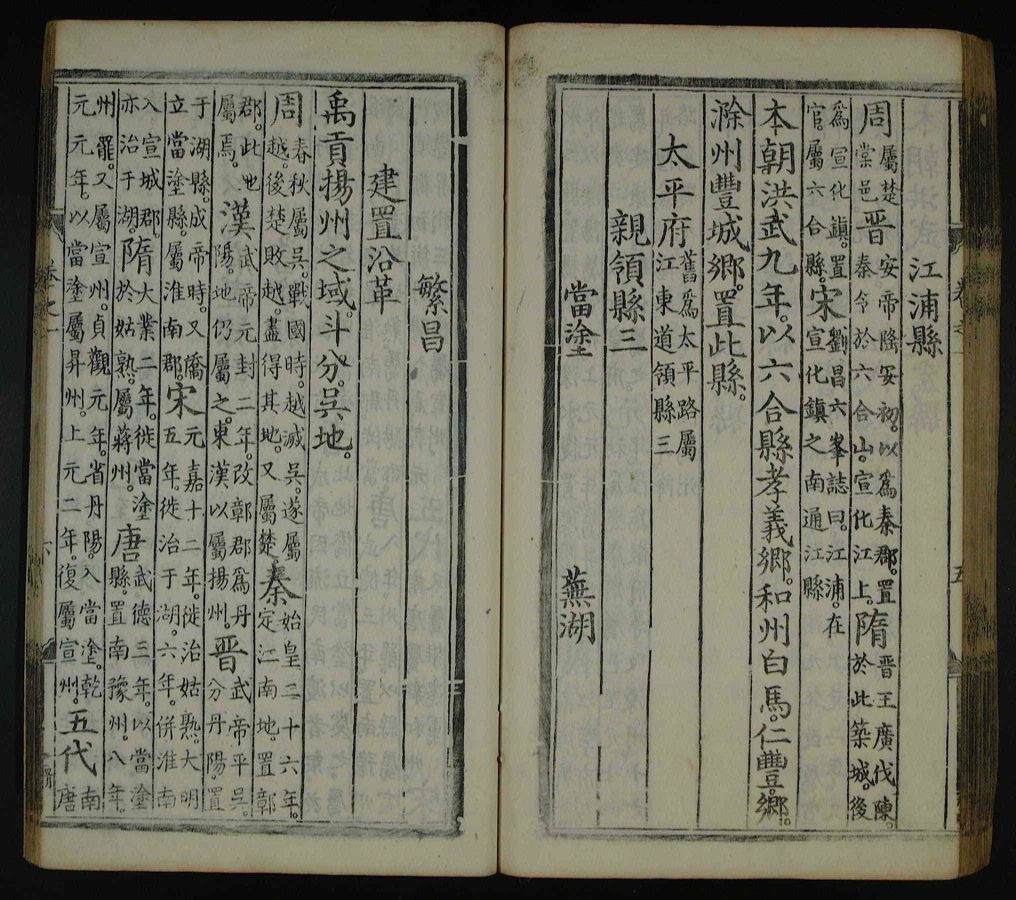 江浦縣
周屬楚
棠邑晉安帝隆安初。以爲秦郡。置
秦令於六合山。宣化江上。隋晉王廣伐陳。
於此築城。後
爲宣化鎮。置
官。屬六合縣。宋劉昌六峯誌曰。江浦。在
宣化鎮之南通江縣
本朝洪武九年。以六合縣孝義鄉。和州白馬。仁豐鄉。
滁州豐城鄉。置此縣。
太平府舊爲太平路屬
江東道領縣三
親領縣三
當塗 蕪湖
繁昌
建置沿革
禹貢揚州之域。斗分。吳地。
周春秋屬吳。戰國時。越滅吳。遂屬
越。後楚敗越。盡得其地。又屬楚秦始皇二十六年。
定江南地。置鄣
郡。此地
屬焉。漢武帝元封二年。改鄣郡爲丹
陽。地仍屬之。東漢以屬揚州。晉武帝平吳。
分丹陽。置
于湖縣。成帝時。又僑
立當塗縣。屬淮南郡宋元嘉十二年。徙治姑熟。大明
五年。徙治于湖。六年。併淮南
入宣城郡。
亦治于湖。隋大業二年。徙當塗
於姑熟。屬蔣州。唐武德三年。以當塗
縣。置南豫州。八年。
州罷。又屬宣州。貞觀元年。省丹陽。入當塗。乾
元元年。以當塗屬昇州。上元二年。復屬宣州。五代南
唐
卷之一
六